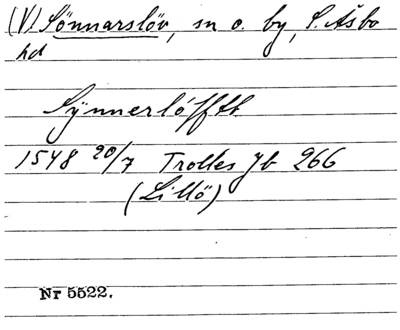 (V) Sönnarslöv, sn o. by, S. Åsbo
hd
Synnerlöfftt
1548 20/7 Trolles Jb 266
(Lillö)
Nr 5522.